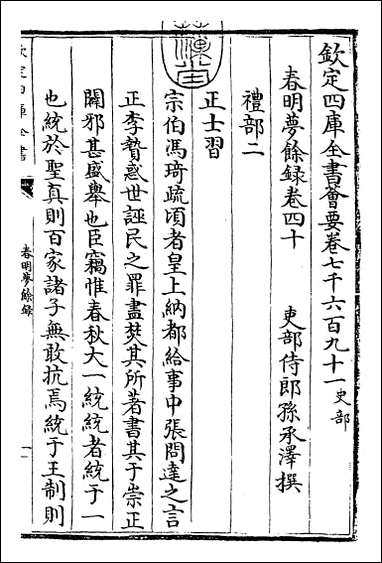 欽定四庫全書薈要卷七千六百九十一史部
春明夢餘録卷四十　吏部侍郎孫承澤撰
禮部二
正士習
宗伯馮琦疏頃者皇上納都給事中張問達之言
正李贄惑世誣民之罪盡焚其所著書其于崇正
闢邪甚盛舉也臣竊惟春秋大一統統者統于一
也統於聖真則百家諸子無敢抗焉統于王制則
欽定四庫全書
春明夢餘録